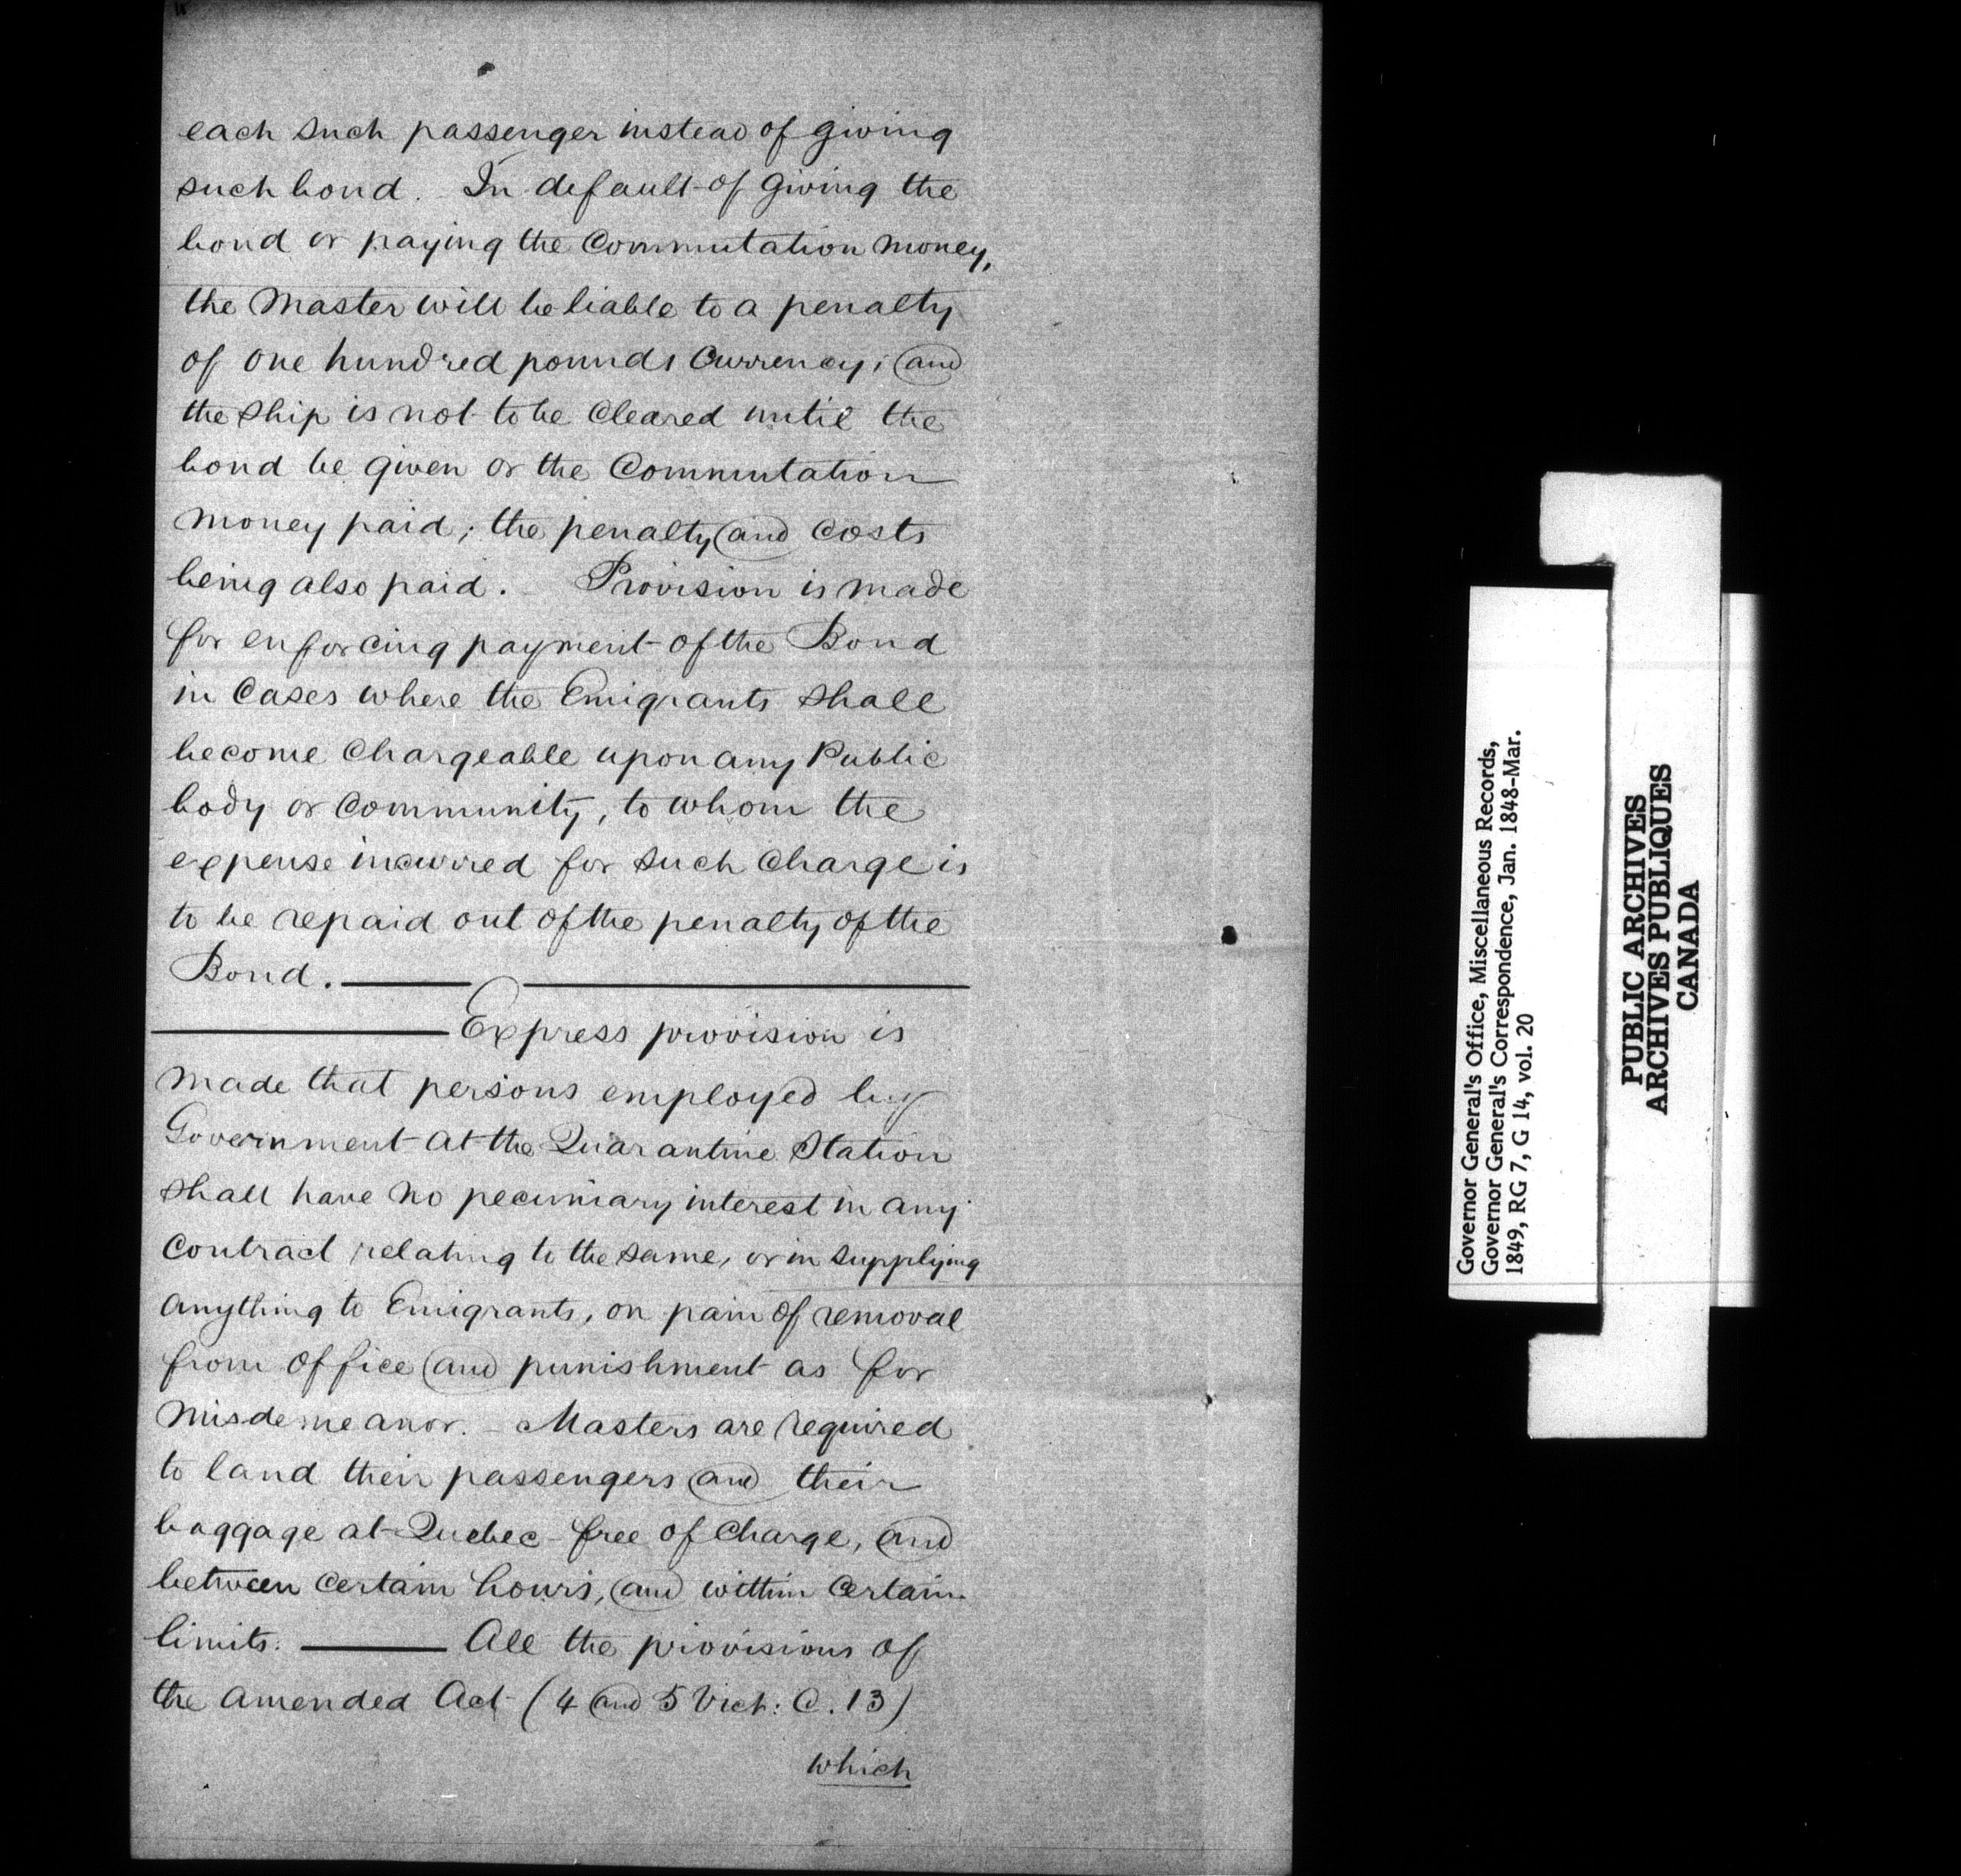 each such passenger instead of giving
such bond. In default of giving the
bond or paying the Commutation money,
the Master will be liable to a penalty
of one hundred pounds Currency; and
the Ship is not to be Cleared until the
bond be given or the Commutation
money paid; the penalty and Costs
being also paid. Provision is made
for enforcing payment of the Bond
in Cases where the Emigrants shall
become Chargeable upon any Public
body or Community, to whom the
expense incurred for such Charge is
to be repaid out of the penalty of the
Bond.
Express provision is
made that persons employed by
Government at the Quarantine Station
shall have no pecuniary interest in any
Contract relating to the same, or in supplying
anything to Emigrants, on pain of removal
from Office and punishment as for
Misdemeanor. - Masters are required
to land their passengers and their
baggage at Quebec free of Charge, and
between Certain hours, and within Certain
limits. All the provisions of
the Amended Act (4 and 5 Vict: C. 13)
which
Governor General's Office, Miscellaneous Records,
Governor General's Correspondence, Jan. 1848-Mar.
1849, RG 7, G 14, vol. 20
PUBLIC ARCHIVES
ARCHIVES PUBLIQUES
CANADA